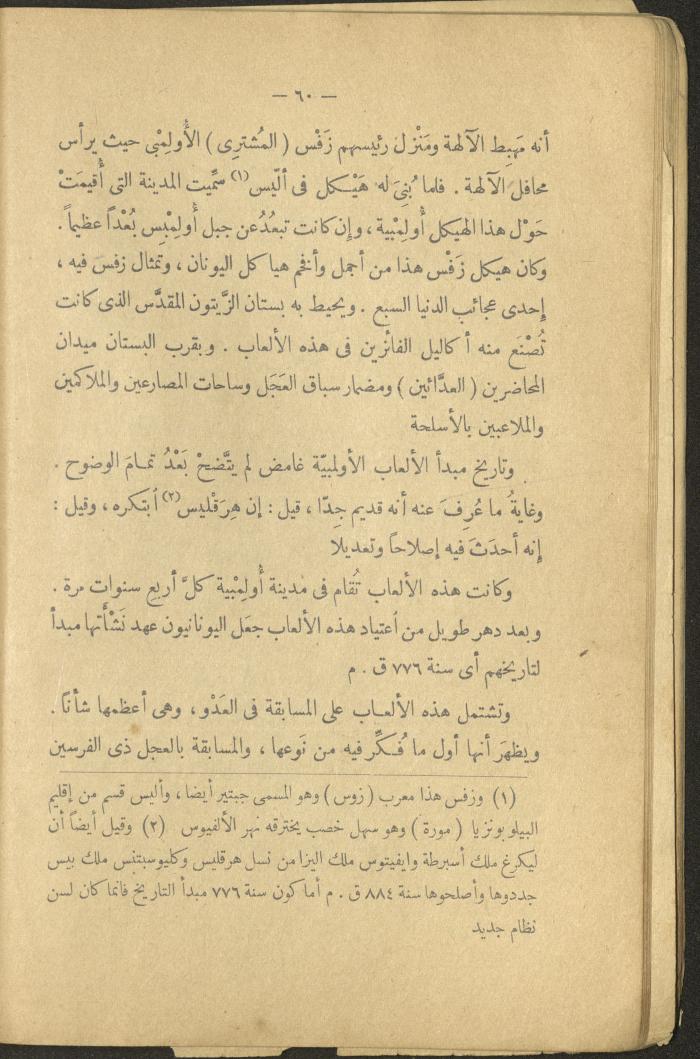 — ٦٠ —
أنه مَهبِط الآلهة ومَنْزل رئيسهم زَفْس ( المُشترِى ) الأُولِمْبى حيث يرأس
محافل الآلهة . فلما بُنِىَ له هَيْكل فى أَلّيس (١) سمِّيت المدينة التى أُقيمَتْ
حَوْل هذا الهيكل أُولِمْبية ، وإن كانت تبعُدُ عن جبل أُولِمْبِس بُعْداً عظيماً .
وكان هيكل زَفْس هذا من أجمل وأفخم هياكل اليونان ، وتمثال زفس فيه ،
إحدى عجائب الدنيا السبع . ويحيط به بستان الزَّيتون المقدَّس الذى كانت
تُصْنَع منه أكاليل الفائزين فى هذه الألعاب . وبقرب البستان ميدان
المحاضرين ( العدَّائين ) ومضمار سباق العَجَل وساحات المصارعين والملاكمين
والملاعبين بالأسلحة
وتاريخ مبدأ الألعاب الأولمبيّة غامض لم يتَّضحْ بَعْدُ تمـام الوضوح .
وغايةُ ما عُرِفَ عنه أنه قديم جِدّا ، قيل : إن هِرَقْليس (٢) ٱبتكره ، وقيل :
إنه أحدَثَ فيه إصلاحاً وتعديلا
وكانت هذه الألعاب تُقام فى مدينة أُولِمْبية كلَّ أربع سنوات مرة .
وبعد دهر طويل من ٱعتياد هذه الألعاب جعَل اليونانيون عهد نَشْأَتها مبدأ
لتاريخهم أى سنة ٧٧٦ ق . م
وتشتمل هذه الألعـاب على المسابقة فى العَدْو ، وهى أعظمها شأناً .
ويظهَر أنها أول ما فُـكِّر فيه من نَوعها ، والمسابقة بالعجل ذى الفرسين
(١) وزفس هذا معرب ( زوس ) وهو المسمى جبتير أيضا ، وأليس قسم من إقليم
البيلوبونزيا ( مورة ) وهو سهل خصب يخترقه نهر الألفيوس (٢) وقيل أيضاً أن
ليكرغ ملك أسبرطة وايفيتوس ملك اليزا من نسل هرقليس وكليوسبتنس ملك بيس
جددوها وأصلحوها سنة ٨٨٤ ق . م أما كون سنة ٧٧٦ مبدأ التاريخ فانما كان لسن
نظام جديد